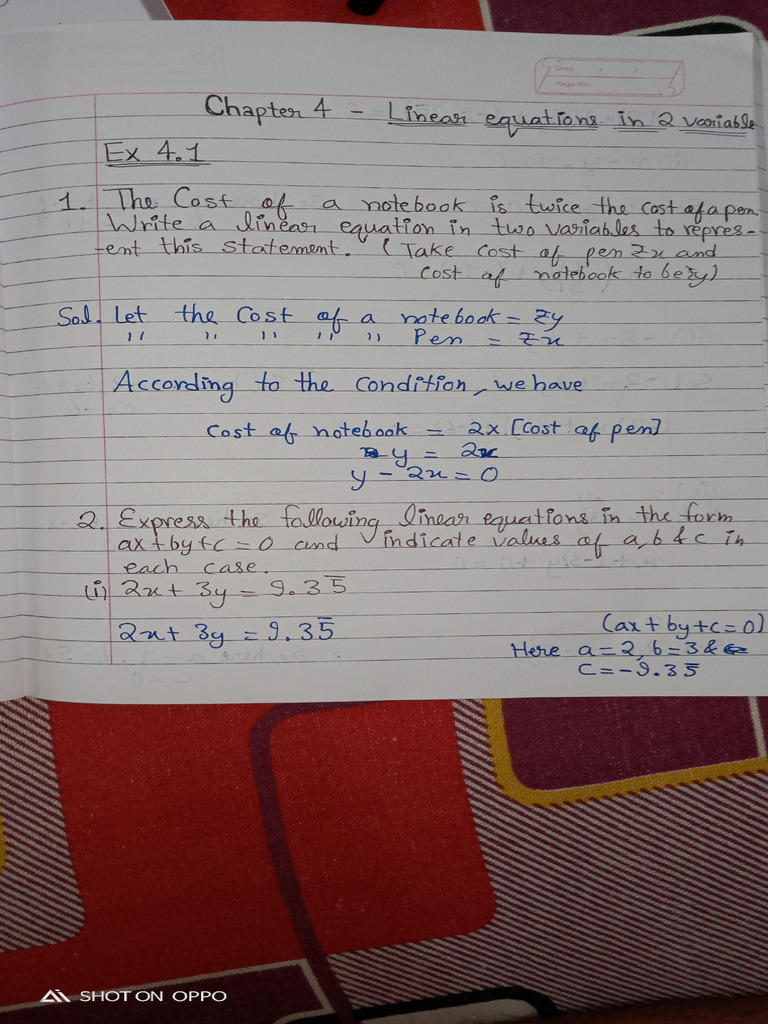 Chapter 4 - Linear equations in 2 variable
Ex 4.1
1. The Cost of a notebook is twice the cost of a pen.
Write a linear equation in two variables to repres-
ent this statement. (Take cost of pen ₹x and
cost of notebook to be ₹y)
Sol. Let the Cost of a notebook = ₹y
" " " " " Pen = ₹x
According to the condition, we have
Cost of notebook = 2x [cost of pen]
y = 2x
y - 2x = 0
2. Express the following linear equations in the form
ax + by + c = 0 and indicate values of a, b & c in
each case.
(i) 2x + 3y = 9.35̅
2x + 3y = 9.35̅ (ax + by + c = 0)
Here a = 2, b = 3 &
c = -9.35̅
SHOT ON OPPO